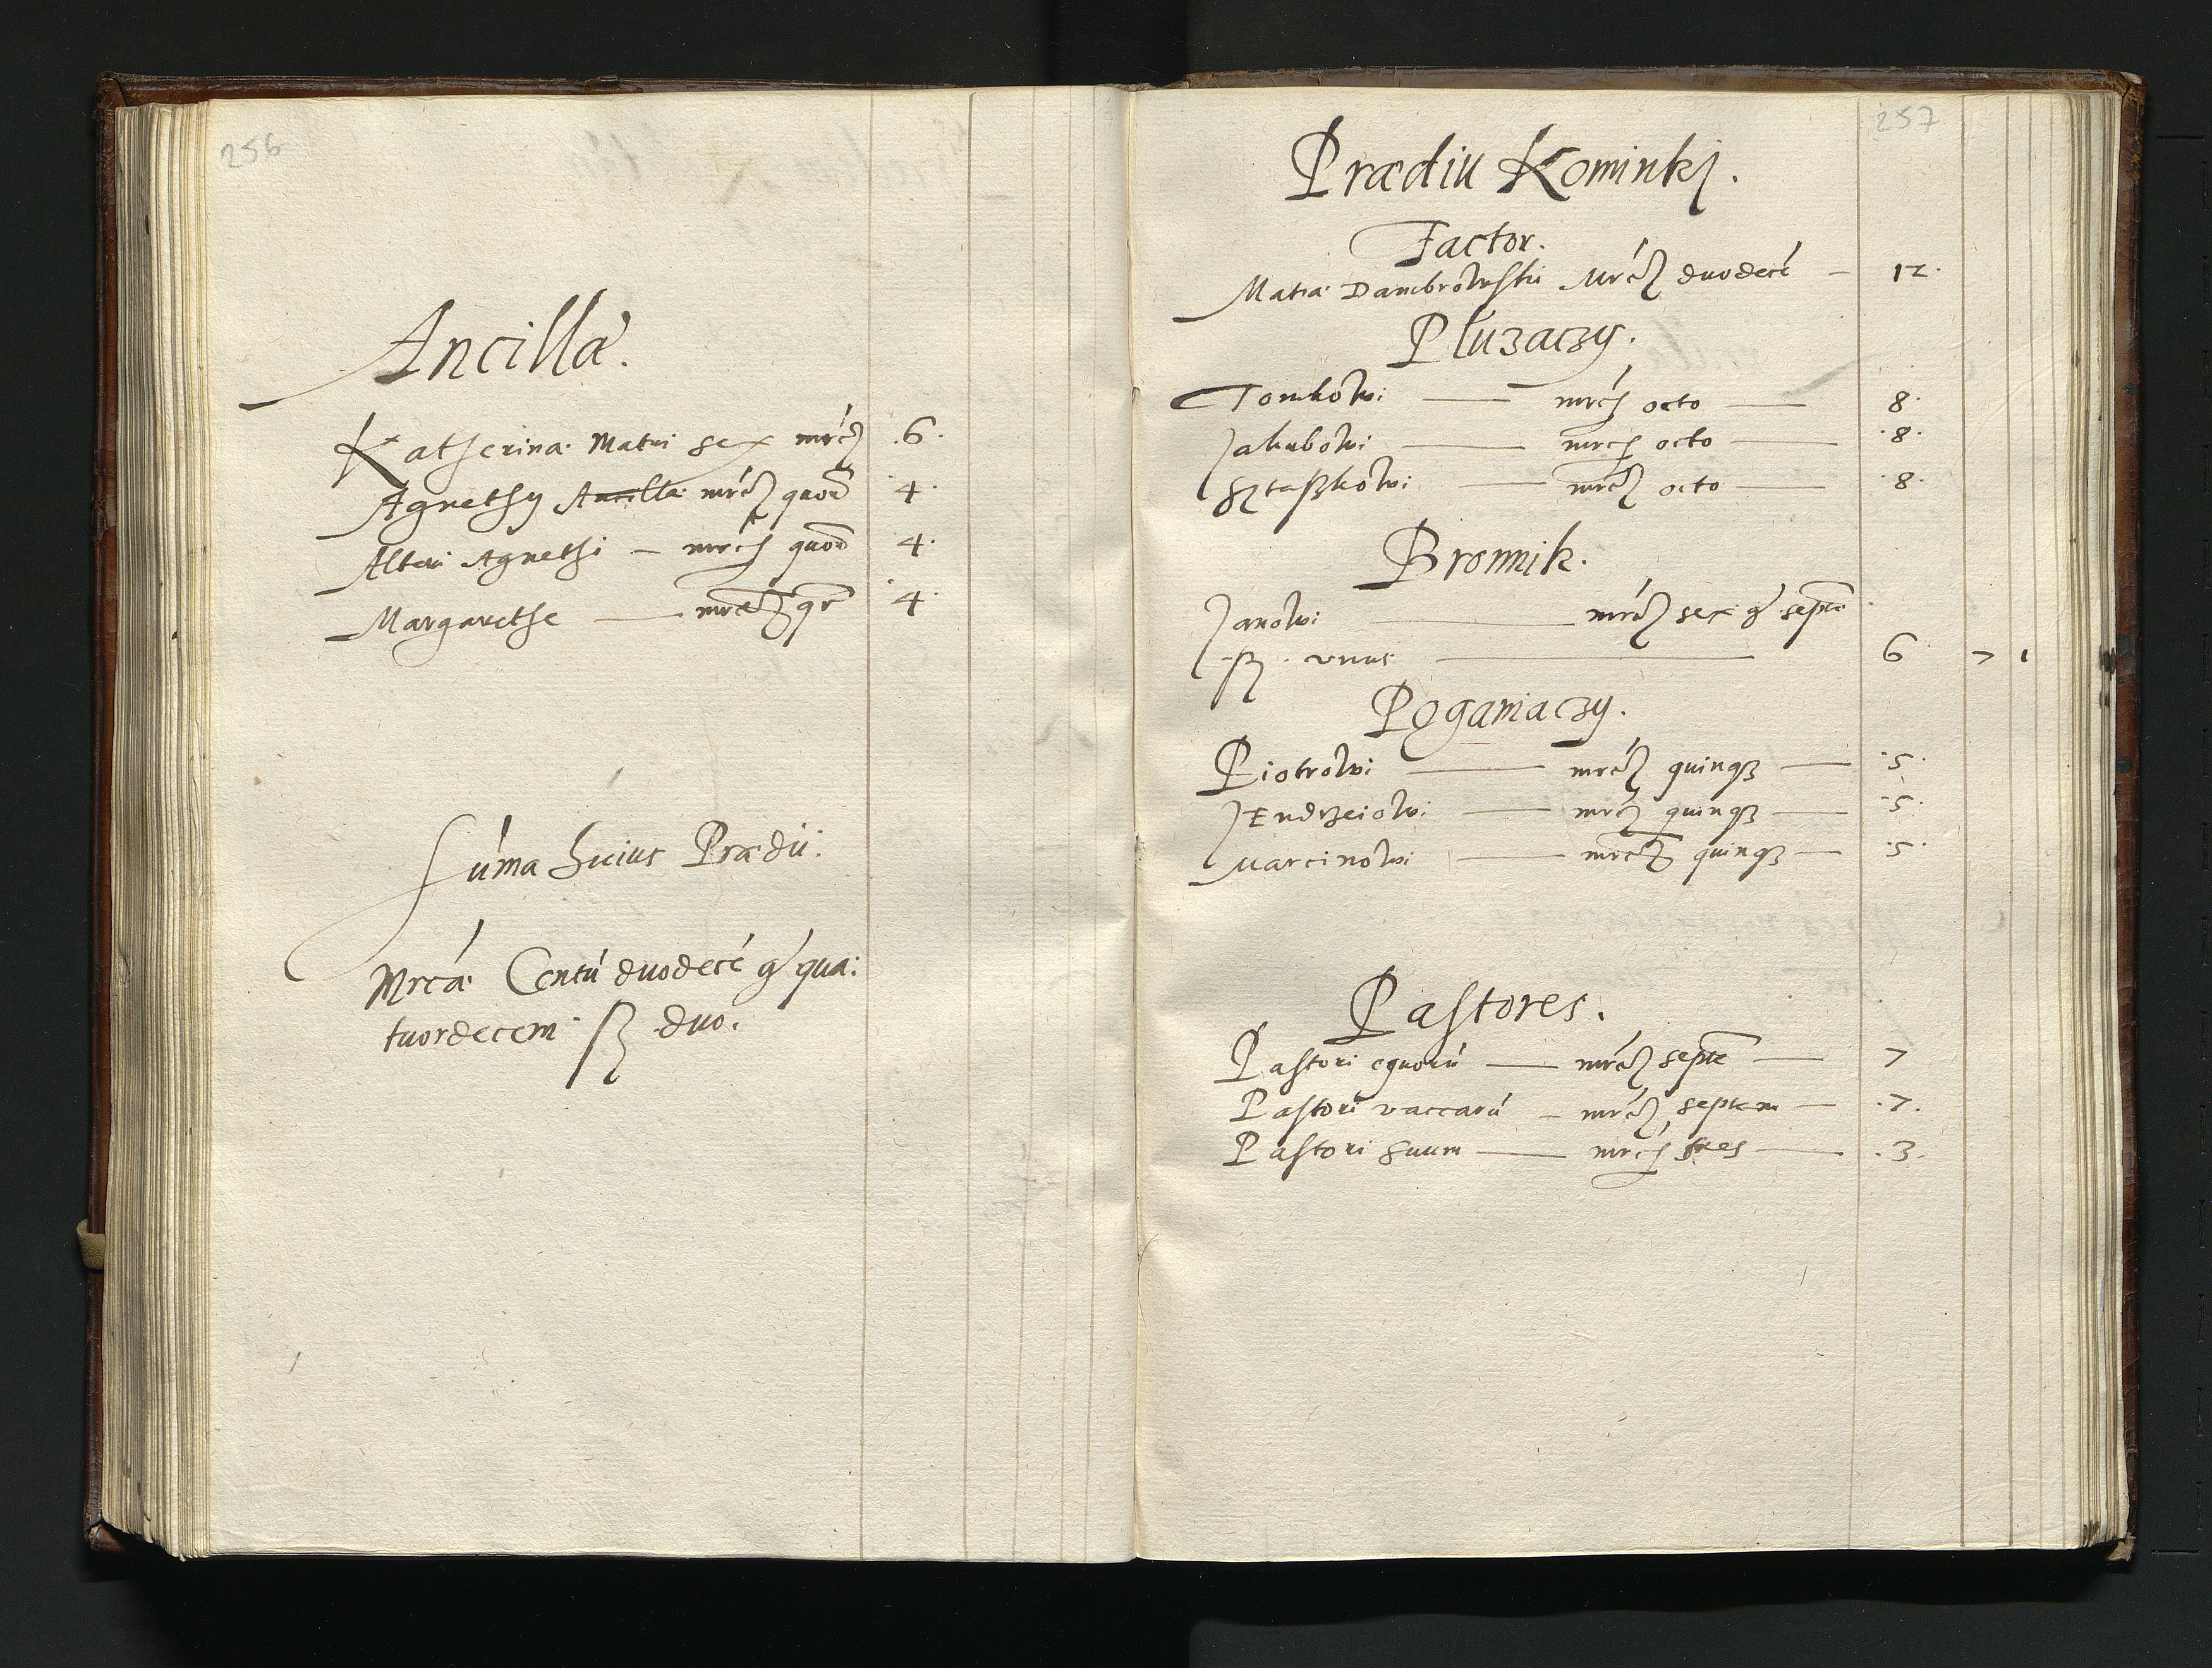 256
Ancillæ.
Katherinæ Matri sex mrcę 6.
Agnethy Ancillæ mrcę quor 4.
Alteri Agnethi — mrcę quor 4.
Margarethe — mrcę qr 4.
Súma huius Prædii.
Mrcæ Centú duodecé gr qua:
tuordecem ſz duo.
257
Prædiu Kominkj.
Factor.
Matiæ Dambrowskii Mrcę duodecé — 12.
Płuzaczy.
Tomkowi — mrcę octo — 8.
Jakubowi — mrcę octo — 8.
Sztaszkowi — mrcę octo — 8.
Bronnik.
Janowi — mrcę sex gr septe
ſz. vnus — 6 7 1
Poganiaczy.
Piotrowi — mrcę quinqȝ — 5.
JEndrzeiowi — mrcę quinqȝ — 5.
Marcinowi — mrcę quinqȝ — 5.
Pastores.
Pastori equorú — mrcę septe — 7
Pastori vaccarú — mrcę septem — 7.
Pastori suum — mrcę tres — 3.